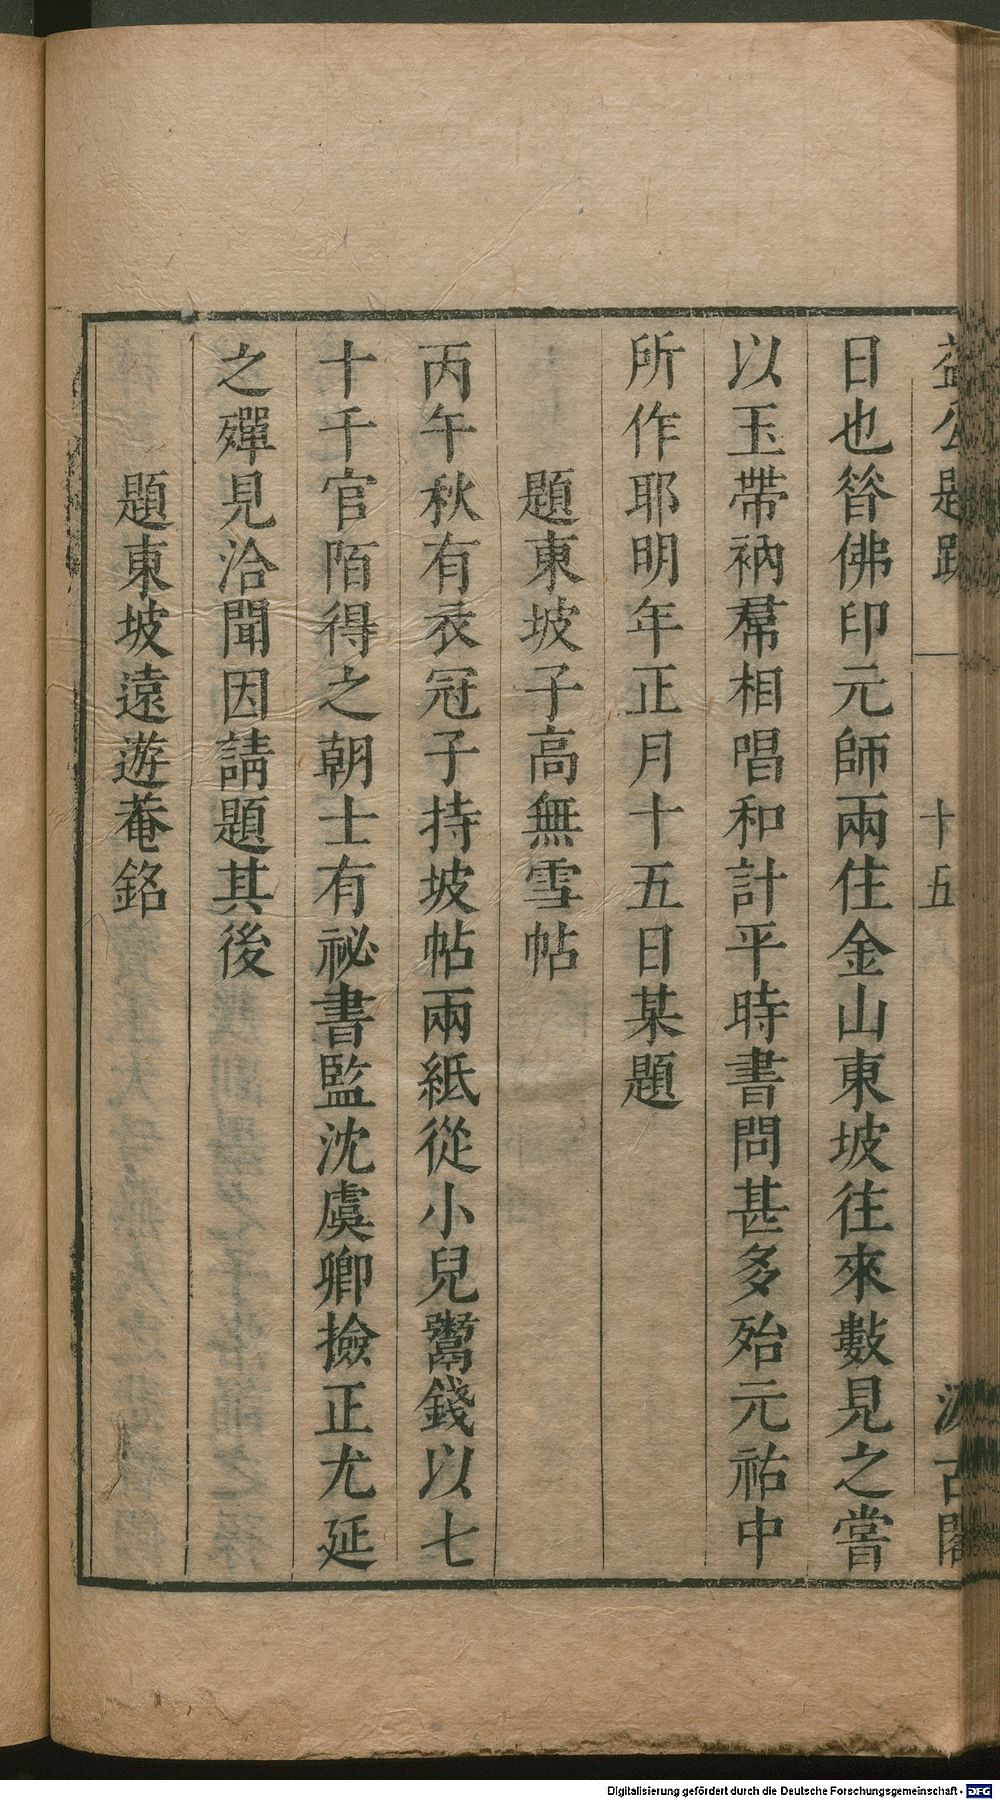 益公題跋 十五 汲古閣
日也昝佛印元師兩住金山東坡往來數見之嘗
以玉帶衲帬相唱和計平時書問甚多殆元祐中
所作耶明年正月十五日某題
題東坡子高無雪帖
丙午秋有衣冠子持坡帖兩紙從小兒鬻錢以七
十千官陌得之朝士有祕書監沈虞卿撿正尤延
之殫見洽聞因請題其後
題東坡遠遊菴銘
Digitalisierung gefördert durch die Deutsche Forschungsgemeinschaft - DFG